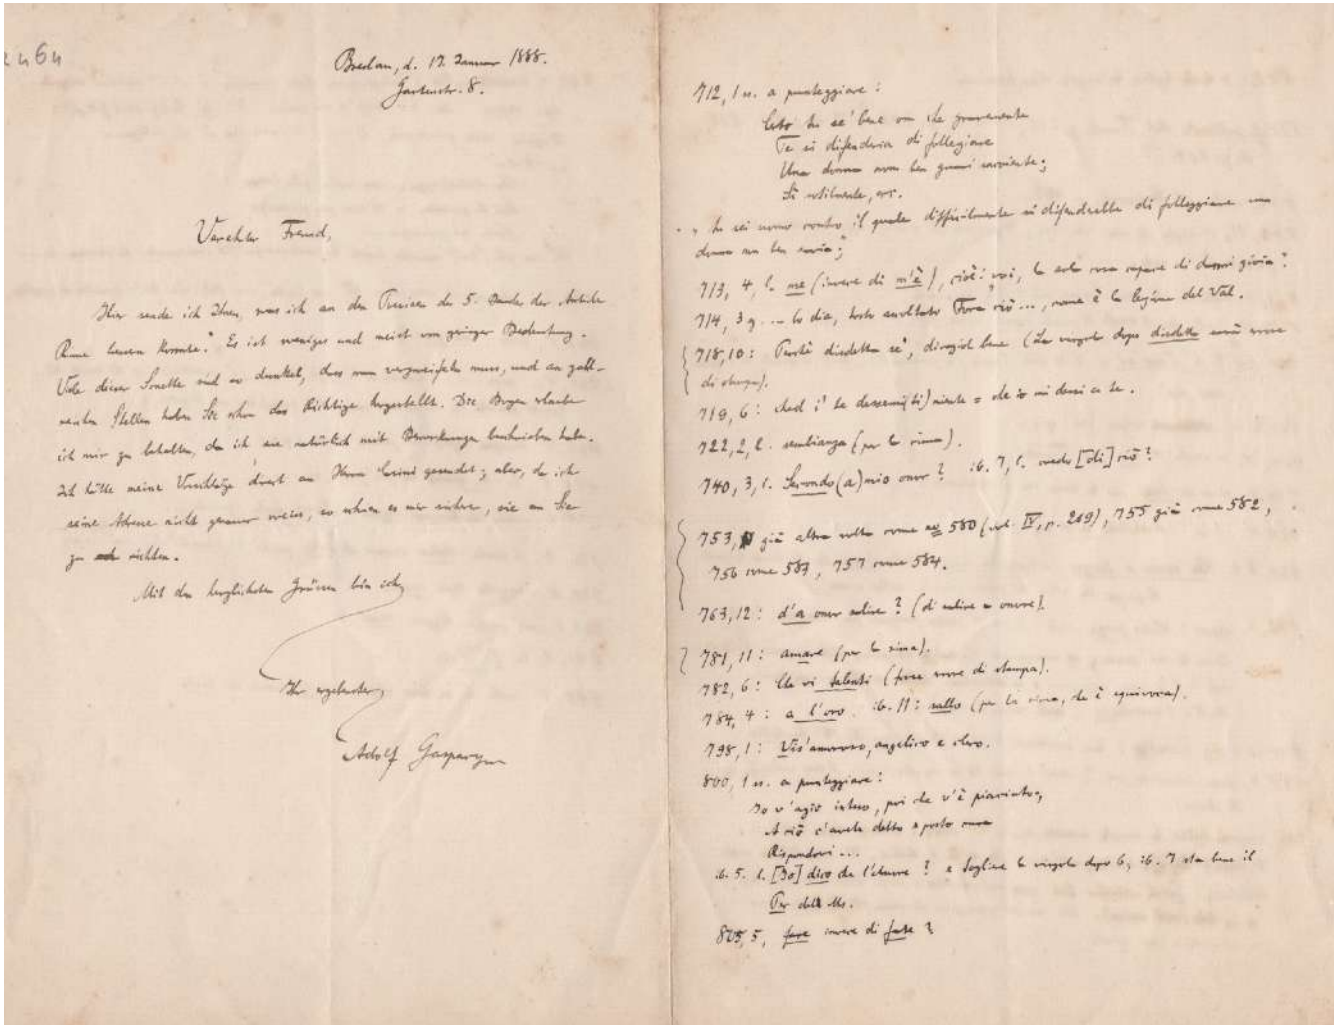 2464
Breslau, d. 17. Januar 1888.
Gartenstr. 8.
Verehrter Freund,
Hier sende ich Ihnen, was ich an den 5. Bandes der Antiche
Rime bessern konnte. Es ist weniges und meist von geringer Bedeutung.
Viele dieser Sonette sind so dunkel, dass man verzweifeln muss, und an zahl-
reichen Stellen haben Sie schon das Richtige hergestellt. Die Bogen erlaube
ich mir zu behalten, da ich sie natürlich mit Bemerkungen beschrieben habe.
Ich hätte meine Vorschläge direct an Herrn gesendet; aber, da ich
seine Adresse nicht genauer weiss, so schien es mir sicherer, sie an Sie
zu richten.
Mit den herzlichsten Grüssen bin ich
Ihr ergebenster
Adolf Gaspary
712, 1 a punteggiare:
tu se' bene om che gravemente
Te si difenderia di follegiare
Una donna non ben guari
Sì
tu sei uomo contro il quale difficilmente si difenderebbe di folleggiare una
donna non ben savia;
713, 4, l. me (invece di m'è), cioè: voi, la sola cosa capace di gioia?
714, 3 lo dia, Fora ciò ..., come è la lezione del Val.
718, 10: Perché disdetta se', bene (La virgola dopo disdetta errore
di stampa).
719, 6: ched i' te = che io mi a te.
722, 2, l. sembianza (per la rima).
740, 3, l. Secondo (a) mio onor? ib. 7, l. [di] ciò?
753, già altra volta come 580 (vol. IV, p. 209), 755 già come 582,
756 come 583, 757 come 584.
763, 12: d'a onor salire? (di salire a onore).
781, 11: amare (per la rima).
782, 6: Che vi talenti (forse errore di stampa).
784, 4: a l'oro. ib. 11: (per la rima, che è equivoca).
798, 1: Vis' amoroso, angelico e clero.
800, 1 a punteggiare:
Io v'agio inteso, poi che v'è
A ciò c'avete detto
Rispondovi ...
ib. 5. l. [Io] dico che ? e togliere la virgola dopo 6, ib. 7 sta bene il
Per del Ms.
805, 5, invece di